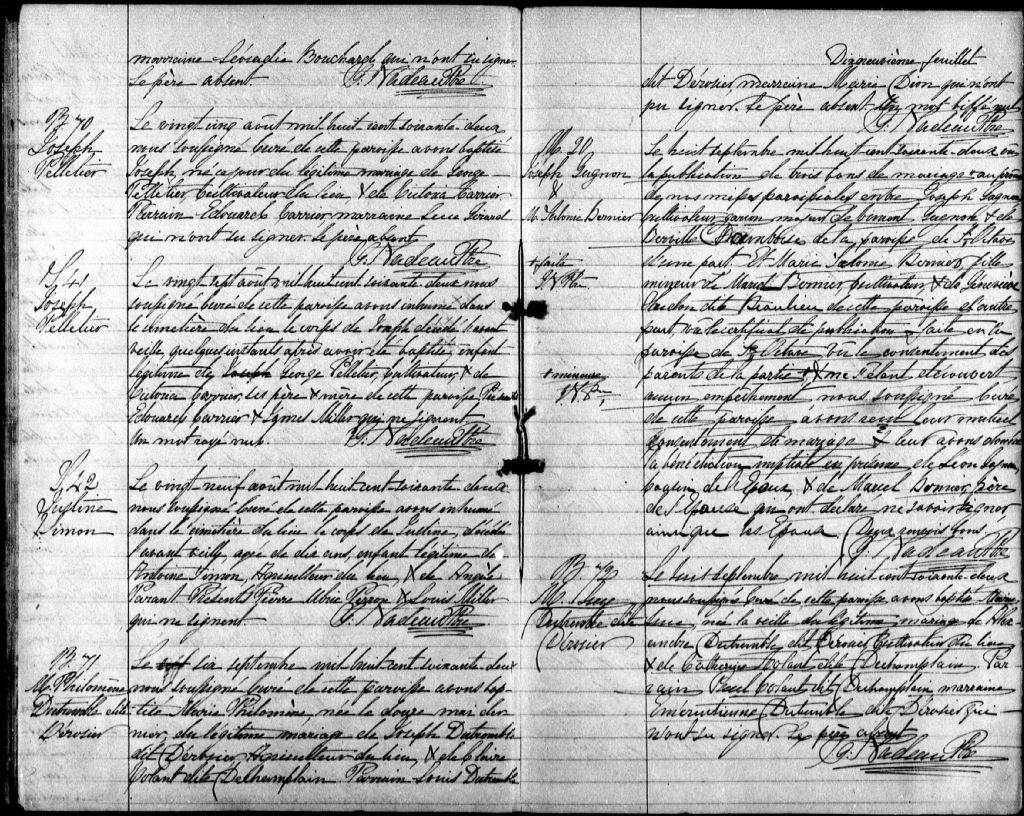 marraine Léocadie Bouchard qui n'ont su signer.
Le père absent. G. Nadeau Ptre
B. 70
Joseph
Pelletier
Le vingt cinq août mil huit cent soixante deux
nous soussigné curé de cette paroisse avons baptisé
Joseph, né ce jour du légitime mariage de George
Pelletier, Cultivateur du lieu & de Victoria Carrier
Parrain Edouard Carrier, marraine Luce Girard
qui n'ont su signer. Le père absent.
G. Nadeau Ptre
S. 41
Joseph
Pelletier
Le vingt sept août mil huit cent soixante deux nous
soussigné curé de cette paroisse avons inhumé dans
le cimetière du lieu le corps de Joseph décédé l'avant
veille, quelques instants après avoir été baptisé, enfant
légitime de George Pelletier, Cultivateur, & de
Victoria Carrier, ses père & mère de cette paroisse Présents
Edouard Carrier & Miller qui ne signent
Un mot rayé nul. G. Nadeau Ptre
S. 42
Justine
Simon
Le vingt neuf août mil huit cent soixante deux
nous soussigné curé de cette paroisse avons inhumé
dans le cimetière du lieu le corps de Justine, décédée
l'avant veille, agée de dix ans, enfant légitime de
Antoine Simon, Agriculteur du lieu, & de Angèle
Parant Présents Pierre & Louis Miller
qui ne signent G. Nadeau Ptre
B. 71
M. Philomène
Dutremble dite
Dérosier
Le six septembre mil huit cent soixante deux
nous soussigné curé de cette paroisse avons bap
tisé Marie Philomène, née le douze mai der
nier, du légitime mariage de Joseph Dutremble
dit Dérosier, Agriculteur du lieu, & de Claire
Volant dite Dechamplain Parrain Louis Dutremble
Dixneuvième feuillet
dit Derosier marraine Marie Dion qui n'ont
pu signer. Le père absent Un mot biffé nul
G. Nadeau Ptre
M. 20
Joseph Gagnon
&
M. Salomé Bernier
Le huit septembre mil huit cent soixante deux vu
la publication de trois bans de mariage + au prône
de nos messes paroissiales entre Joseph Gagnon
cultivateur garçon majeur de Gagnon & de
de la paroisse de St Octave
+ faite
G. N. Ptre
d'une part Et Marie Salomé Bernier, fille
mineure de Marcel Bernier cultivateur, & de Geneviève
dit Beaulieu de cette paroisse d'autre
part Vu le certificat de publication faite en la
paroisse de St Octave Vu le consentement des
+ mineure
G. N. P.
parents de la partie +, & ne s'étant découvert
aucun empêchement nous soussigné curé
de cette paroisse avons reçu leur mutuel
consentement de mariage & leur avons donné
la bénédiction nuptiale en présence de Léon Gagnon
cousin de l'Epoux, & de Marcel Bernier, père
de l'Epouse qui ont déclaré ne savoir signer
ainsi que les Epoux (Deux renvois bons)
G. Nadeau Ptre
B. 72
M. Luce
Dutremble dite
Dérosier
Le huit septembre mil huit cent soixante deux
nous soussigné curé de cette paroisse avons baptisé Marie
Luce, née la veille du légitime mariage de Alex
andre Dutremble dit Dérosier Cultivateur du lieu
& de Catherine Volant dite Duchamplain Par
rain Paul Volant dit Duchamplain marraine
Emérentienne Dutremble dite Dérosier qui
n'ont su signer. Le père absent
G. Nadeau Ptre